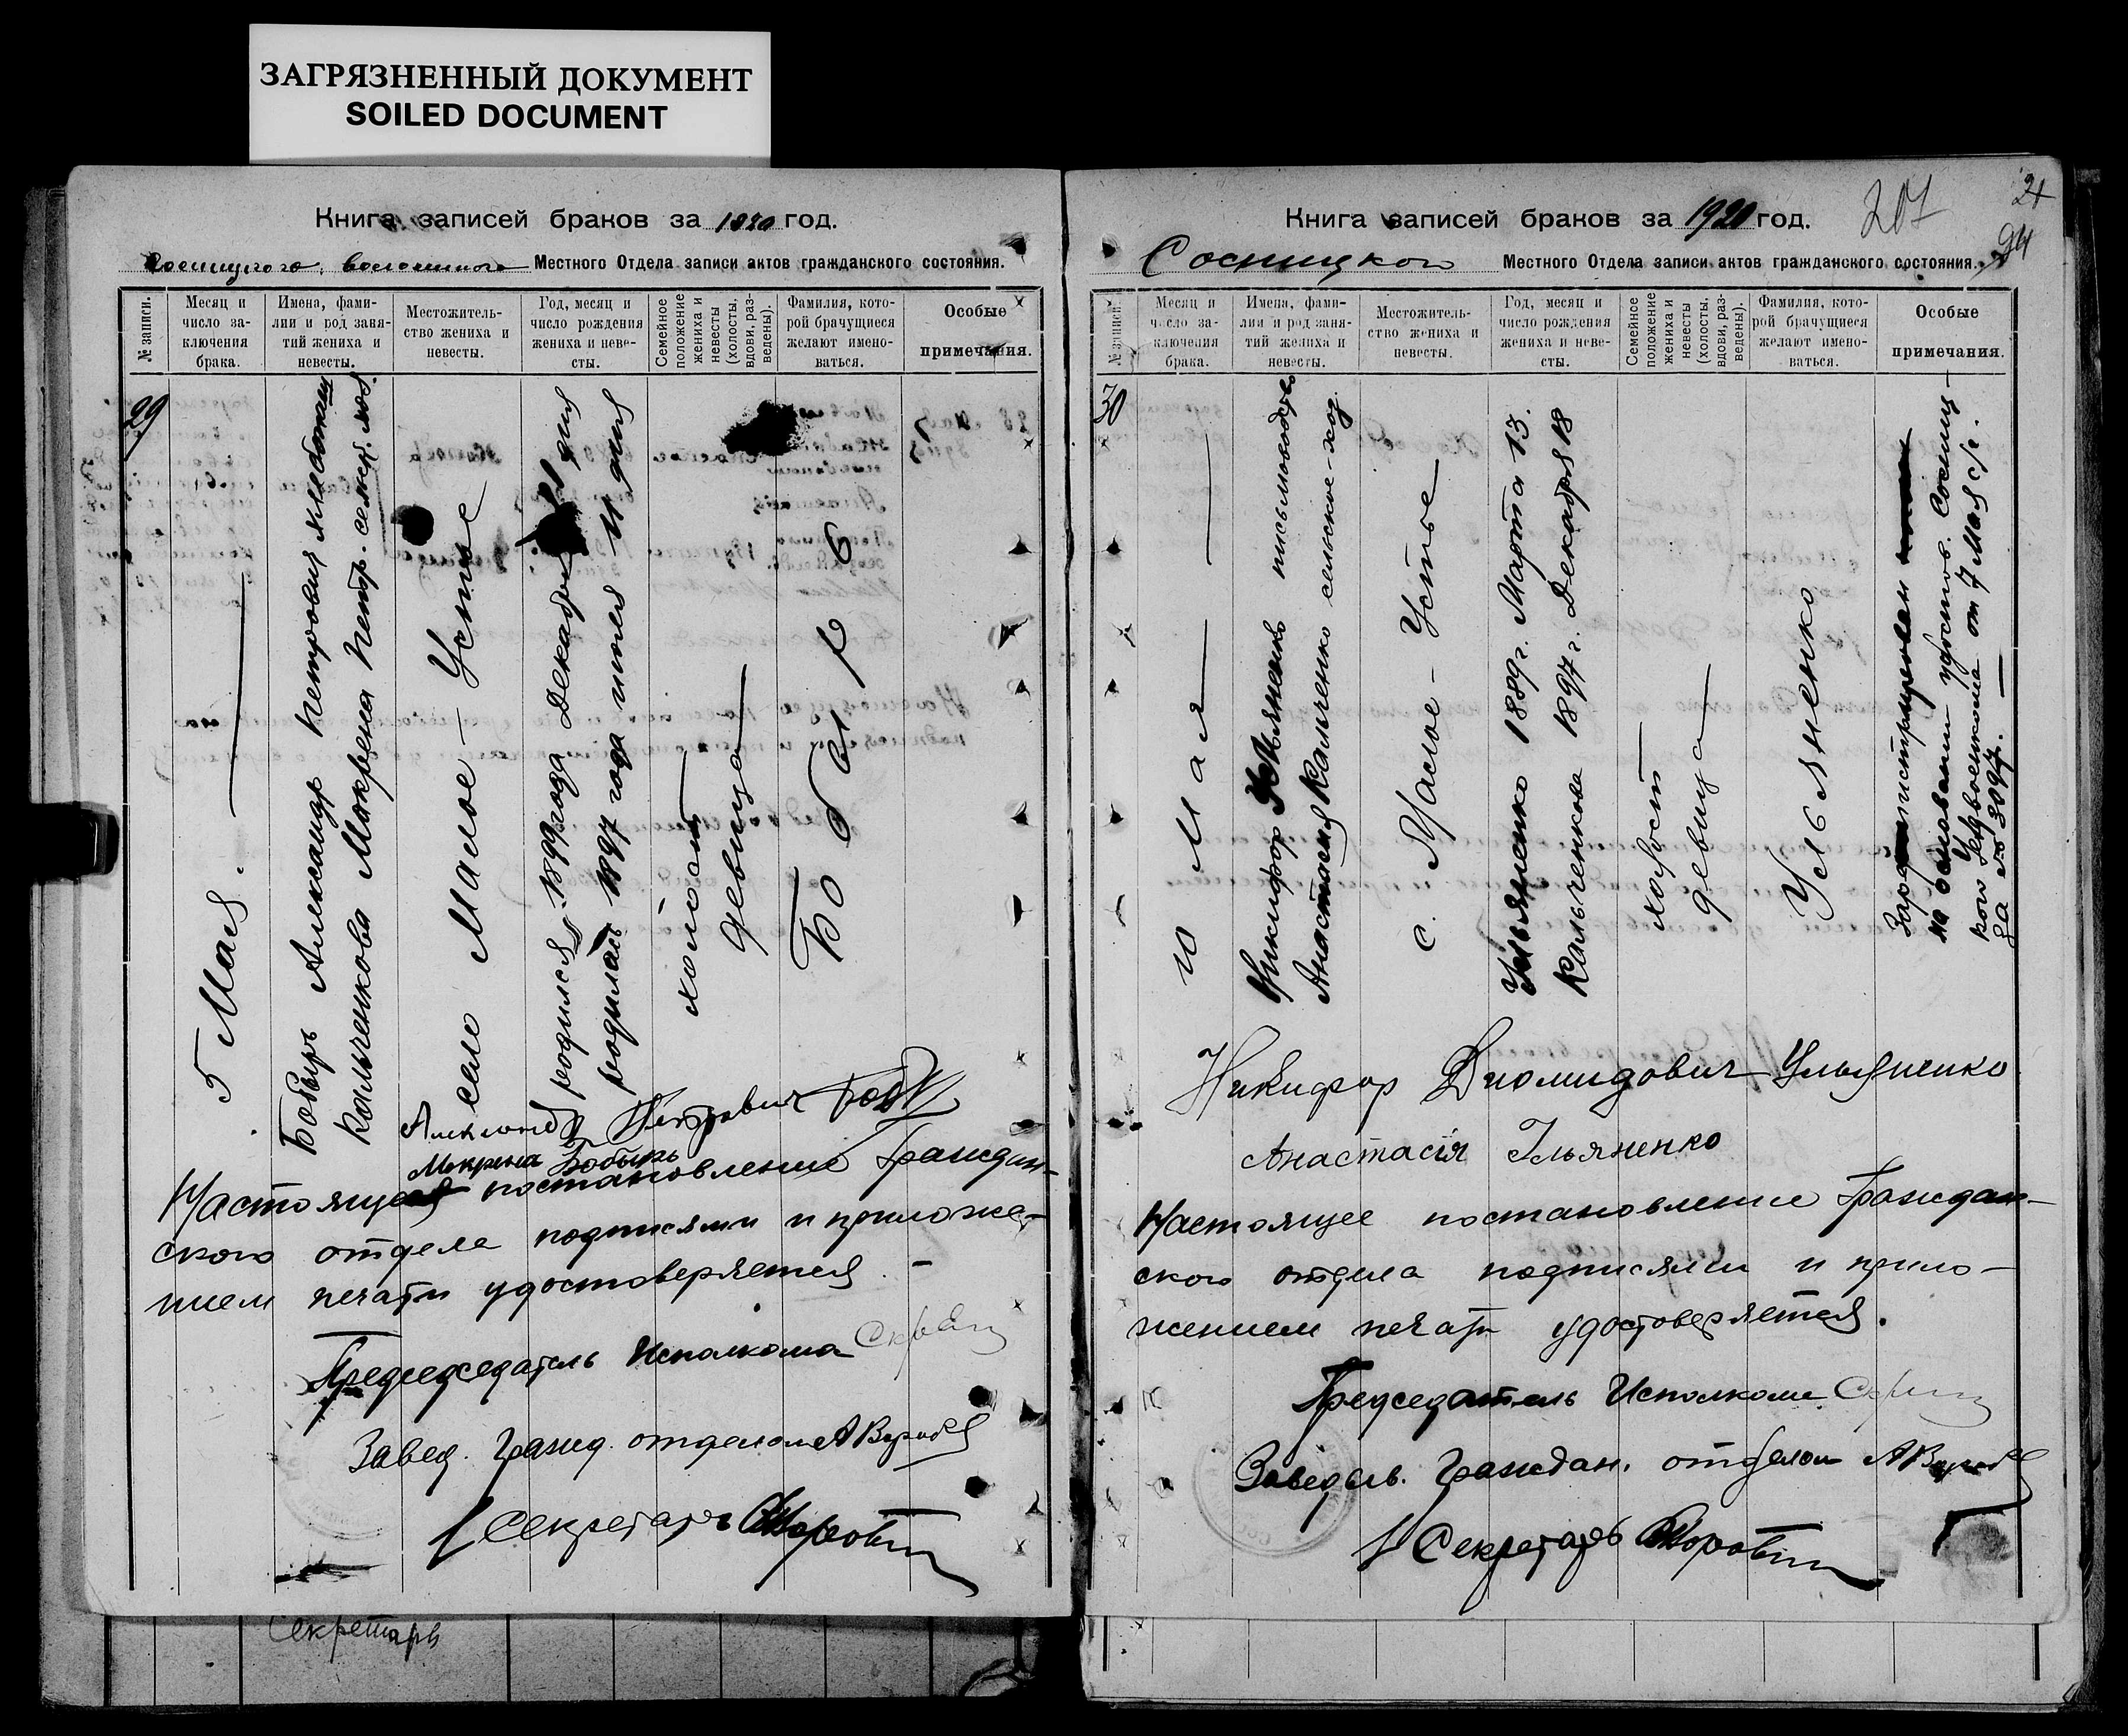 ЗАГРЯЗНЕННЫЙ ДОКУМЕНТ
SOILED DOCUMENT
Книга записей браков за 1920 год.
Местного Отдела записи актов гражданского состояния.
№ записи.
Месяц и
число за-
ключения
брака.
Имена, фами-
лии и род заня-
тий жениха и
невесты.
Местожитель-
ство жениха и
невесты.
Год, месяц и
число рождения
жениха и неве-
сты.
Семейное
положение
жениха и
невесты
(холосты,
вдовы, раз-
ведены).
Фамилия, кото-
рой брачущиеся
желают имено-
ваться.
Особые
примечания.
29
5 Мая.
Бобырь Александр Петрович
Кольченкова Макрена Петр.
село Малое-Устье
родился 1899 года Декабря дня
родилась 1897 года июля 11 дня
холост
девица
Бобырь
Александр Петрович
Макрена Бобырь
Настоящее постановление Граждан-
ского отдела подписями и приложе-
нием печати удостоверяется. -
Председатель Исполкома
Завед. Гражд. отделом
Секретарь
Секретарь
Книга записей браков за 1920 год.
207
24
94
Сосницкой Местного Отдела записи актов гражданского состояния.
№ записи.
Месяц и
число за-
ключения
брака.
Имена, фами-
лии и род заня-
тий жениха и
невесты.
Местожитель-
ство жениха и
невесты.
Год, месяц и
число рождения
жениха и неве-
сты.
Семейное
положение
жениха и
невесты
(холосты,
вдови, раз-
ведены).
Фамилия, кото-
рой брачущиеся
желают имено-
ваться.
Особые
примечания.
30
10 Мая
Никифор Ульяненко
Анастасия Кальченко сельское-хоз.
с. Малое-Устье
Ульяненко 1889 г. Марта 13.
Кальченкова 1897 г. Декабря 18
холост
девица
Ульяненко
на основании удостов. Сосниц-
кого Увоенкома от 7 Мая с/г.
за № 3097.
Никифор Диомидович Ульяненко
Анастасія Ульяненко
Настоящее постановление Граждан-
ского отдела подписями и прило-
жением печати удостоверяется.
Председатель Исполкома
Заведыв. Граждан. отделом
Секретарь